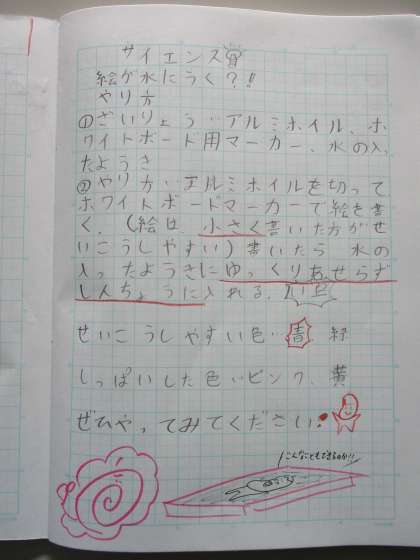 サイエンス
絵が水にうく?!!
やり方
①ざいりょう…アルミホイル、ホ
ワイトボード用マーカー、水の入っ
たようき
②やり方…アルミホイルを切って
ホワイトボードマーカーで絵を書
く。(絵は、小さく書いた方がせ
いこうしやすい)書いたら、水の
入ったようきにゆっくりあせらず
しんちょうに入れる。
せいこうしやすい色…青、緑
しっぱいした色…ピンク、黄
ぜひやってみてください!
こんなこともできるのか!!